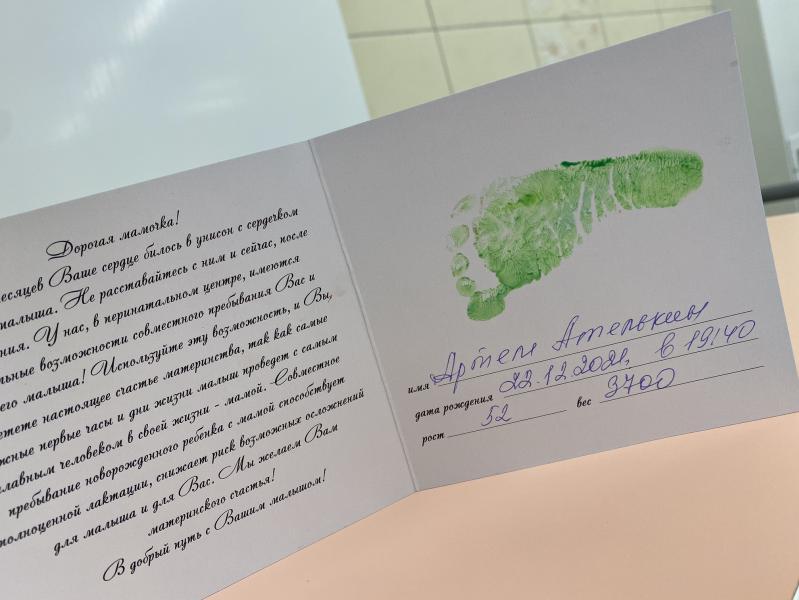 Дорогая мамочка!
есяцев Ваше сердце билось в унисон с сердечком
малыша. Не расставайтесь с ним и сейчас, после
ния. У нас, в перинатальном центре, имеются
льные возможности совместного пребывания Вас и
его малыша! Используйте эту возможность, и Вы,
етете настоящее счастье материнства, так как самые
жные первые часы и дни жизни малыш проведет с самым
главным человеком в своей жизни - мамой. Совместное
пребывание новорожденного ребенка с мамой способствует
олноценной лактации, снижает риск возможных осложнений
для малыша и для Вас. Мы желаем Вам
материнского счастья!
В добрый путь с Вашим малышом!
имя Артем
дата рождения 22.12.2021, в 19:40
рост 52 вес 3700